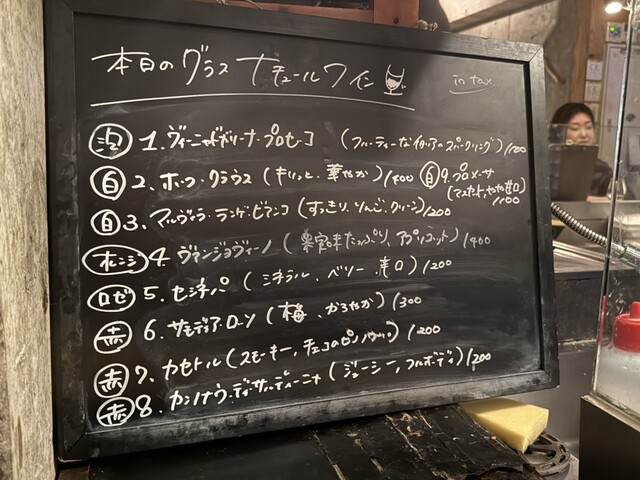 本日のグラス ナチュールワイン
in tax
泡 1. ヴィーニャドドリーナ・プロセッコ (フルーティーなイタリアのスパークリング) /1200
白 2. ホーフ・クラウス (キリッと、華やか) /1400
白 9. プロメーサ (マスカット、やや甘口) /1100
白 3. マルヴィラ・ランゲ・ビアンコ (すっきり、りんご、クリーン) /1200
オレンジ 4. ヴァンジョヴィーノ (果実味たっぷり、アプリコット) /1400
ロゼ 5. セシネパ (ミネラル、ベリー、辛口) /1200
赤 6. サモディア・ローソ (梅、かろやか) /1300
赤 7. カセトル (スモーキー、チェコのピノ) /1200
赤 8. カンノナウ・ディ・サルディーニャ (ジューシー、フルボディ) /1200